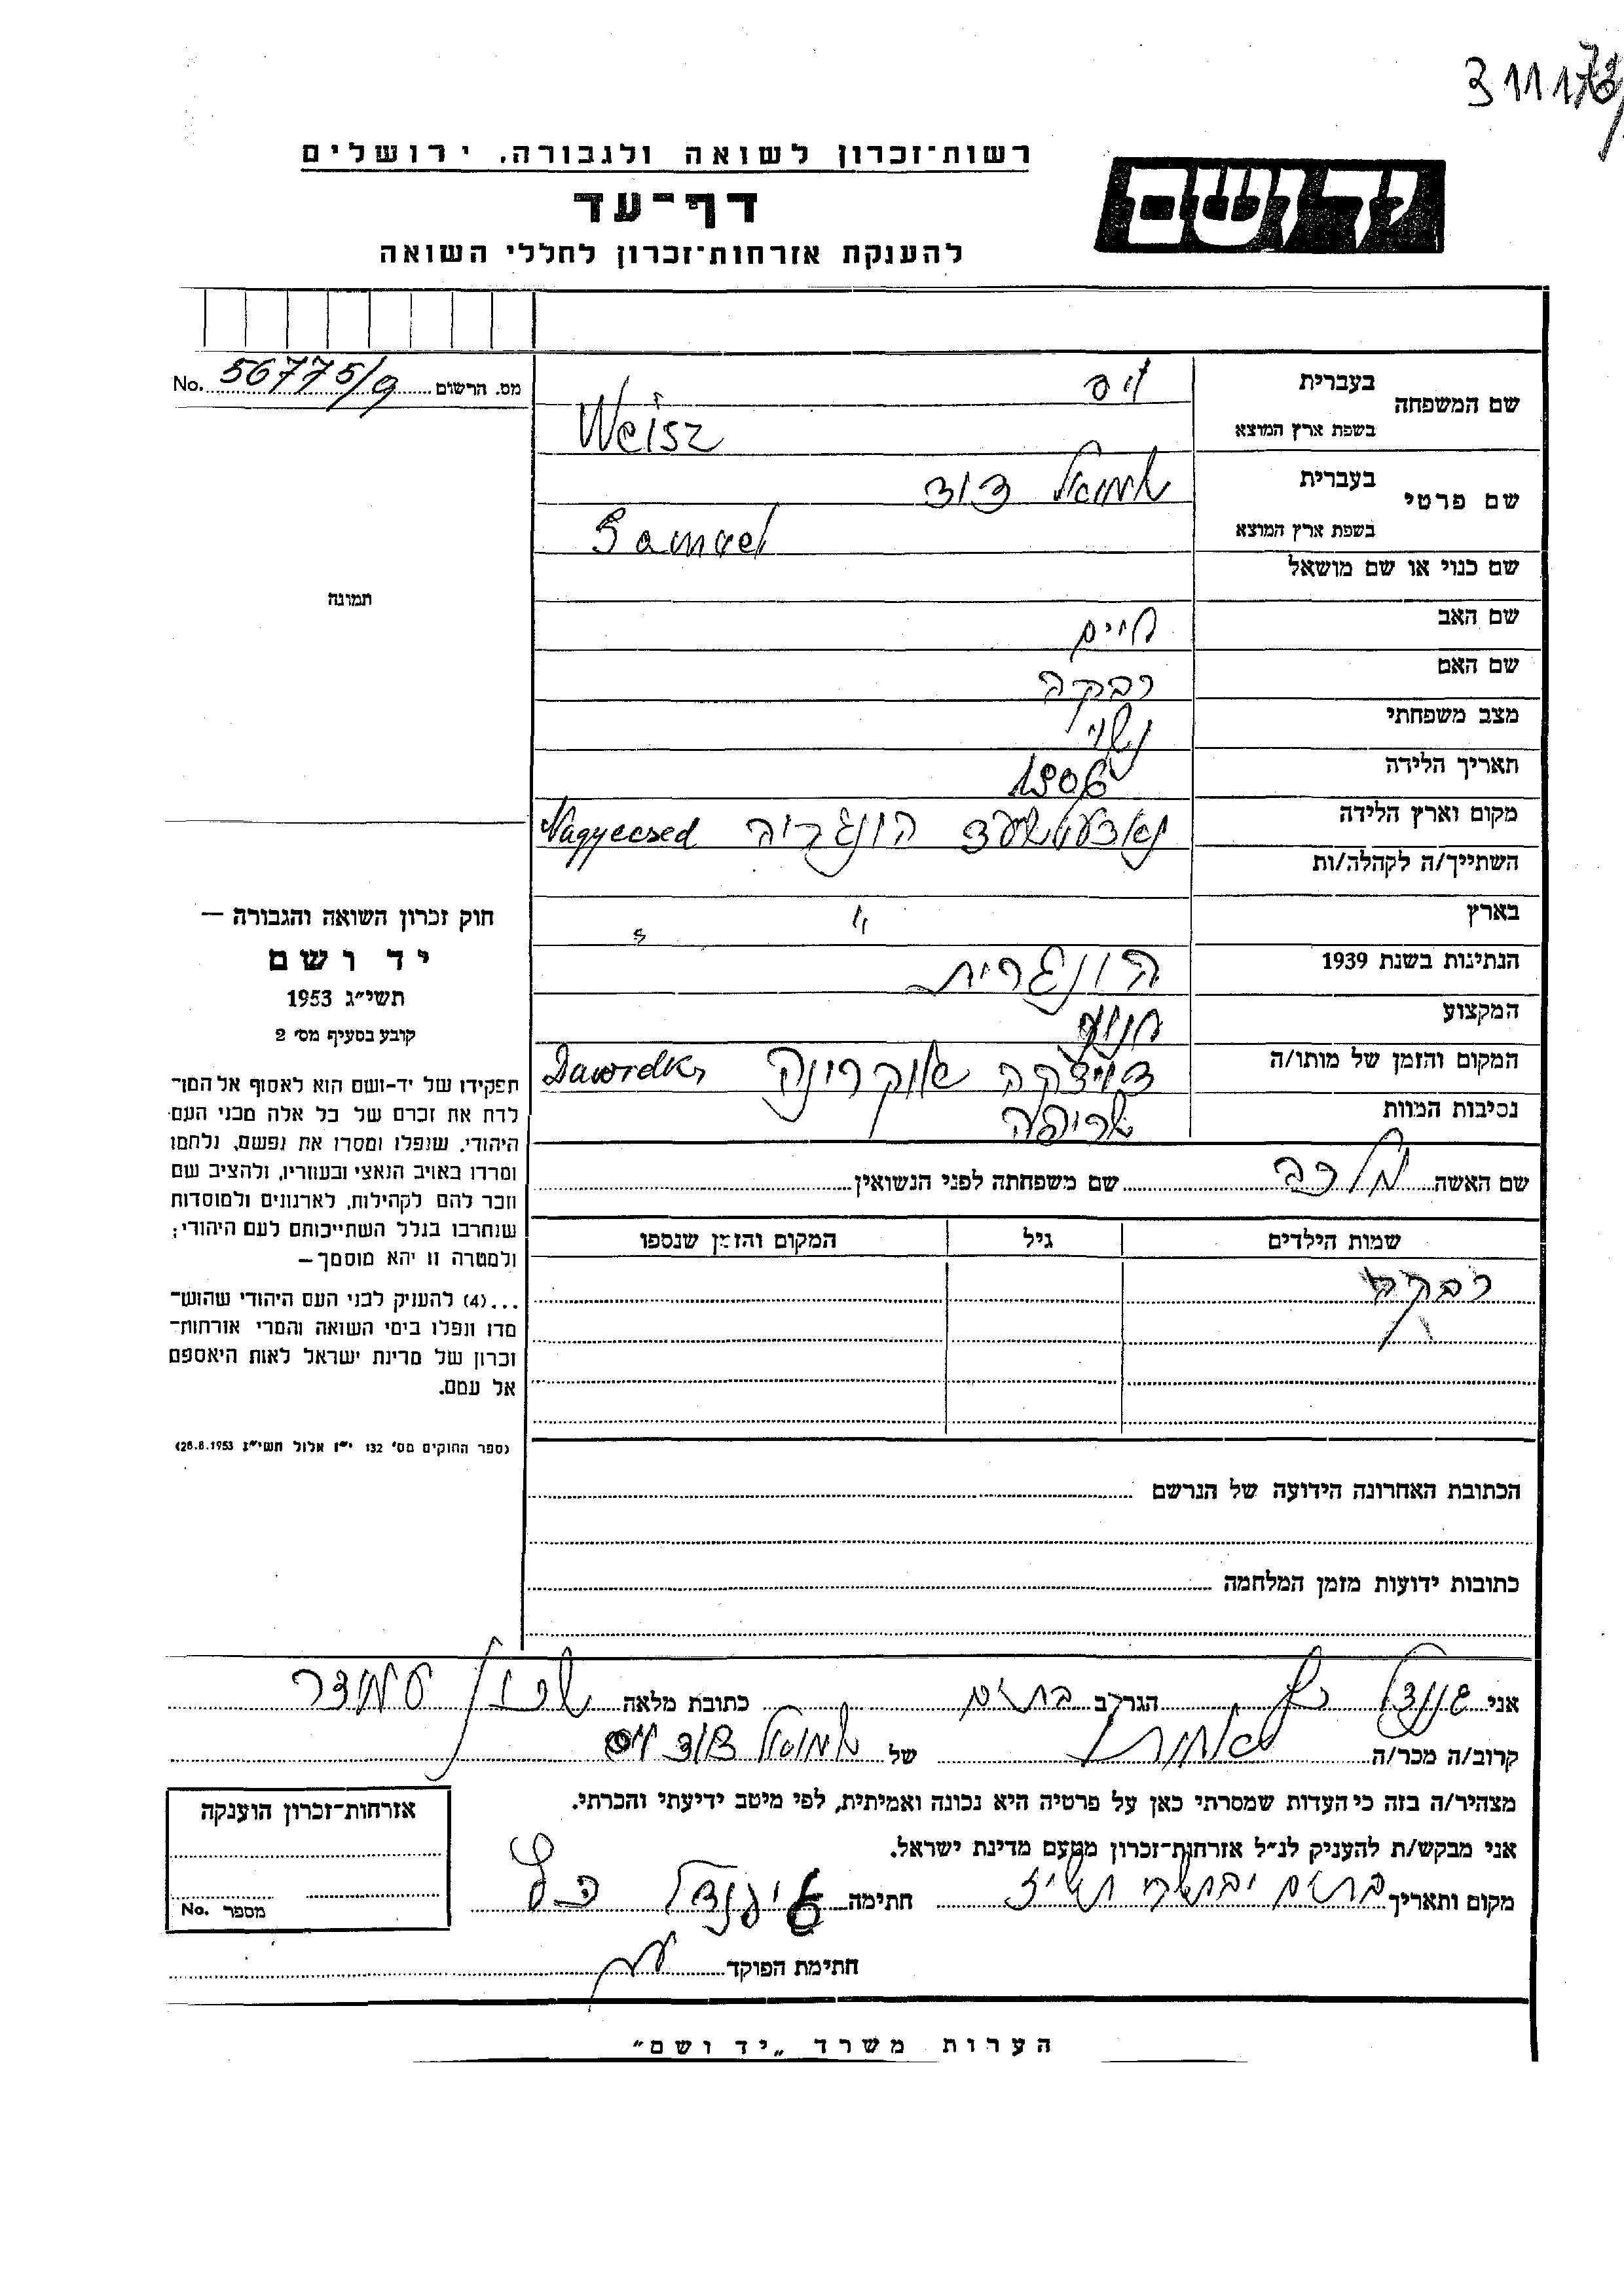 3111 73
רשות־זכרון לשואה ולגבורה. ירושלים
יד ושם
דף־עד
להענקת אזרחות־זכרון לחללי השואה
No. 56775/9 מס. הרשום
שם המשפחה
בעברית ויס
בשפת ארץ המוצא Weisz
שם פרטי
בעברית שמואל דוד
בשפת ארץ המוצא Samuel
שם כנוי או שם מושאל
תמונה
שם האב חיים
שם האם רבקה
מצב משפחתי נשוי
תאריך הלידה 1906
מקום וארץ הלידה הונגריה Nagyecsed
השתייך/ה לקהלה/ות
בארץ "
הנתינות בשנת 1939 הונגרית
המקצוע
המקום והזמן של מותו/ה אוקרינה
נסיבות המוות שריפה
שם האשה מלכה שם משפחתה לפני הנשואין
שמות הילדים גיל המקום והזמן שנספו
רבקה
חוק זכרון השואה והגבורה —
יד ושם
תשי״ג 1953
קובע בסעיף מס׳ 2
תפקידו של יד-ושם הוא לאסוף אל המו־
לדת את זכרם של כל אלה מבני העם
היהודי, שנפלו ומסרו את נפשם, נלחמו
ומרדו באויב הנאצי ובעוזריו, ולהציב שם
וזכר להם לקהילות, לארגונים ולמוסדות
שנחרבו בגלל השתייכותם לעם היהודי;
ולמטרה זו יהא מוסמך —
...(4) להעניק לבני העם היהודי שהוש־
מדו ונפלו בימי השואה והמרי אזרחות־
זכרון של מדינת ישראל לאות היאספם
אל עמם.
(ספר החוקים מס׳ 132 י״ז אלול תשי״ג 28.8.1953)
הכתובת האחרונה הידועה של הנרשם
כתובות ידועות מזמן המלחמה
אני הגר/ב בת ים כתובת מלאה
קרוב/ה מכר/ה של שמואל דוד ויס
מצהיר/ה בזה כי העדות שמסרתי כאן על פרטיה היא נכונה ואמיתית, לפי מיטב ידיעתי והכרתי.
אני מבקש/ת להעניק לנ״ל אזרחות־זכרון מטעם מדינת ישראל.
מקום ותאריך בת ים חתימה
חתימת הפוקד
אזרחות־זכרון הוענקה
מספר No.
הערות משרד „יד ושם״